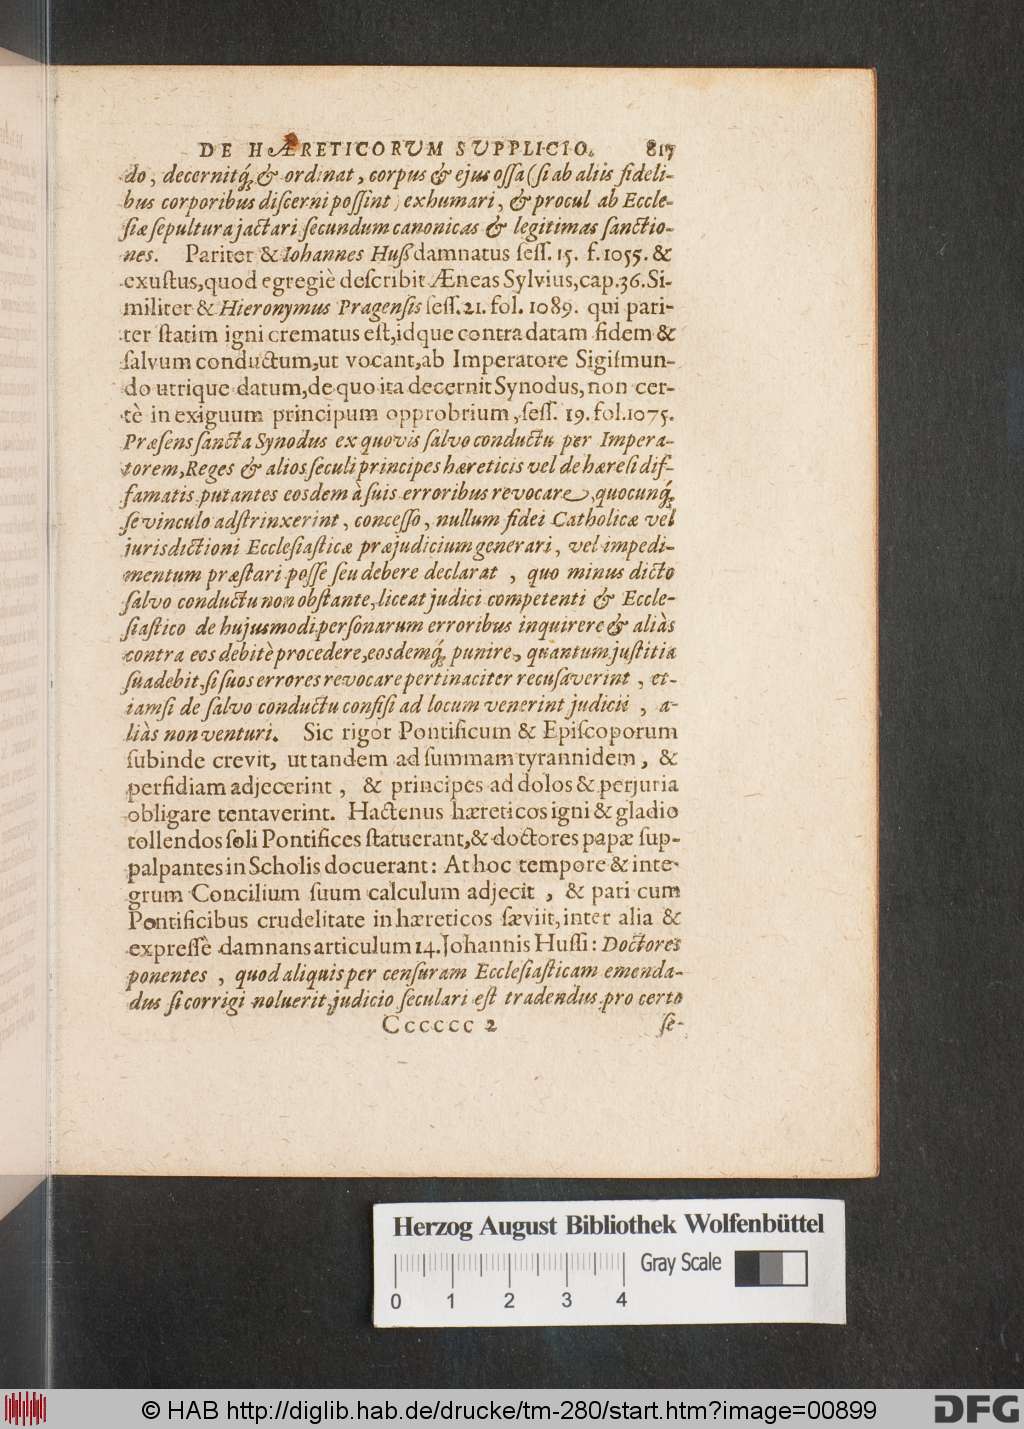 DE HÆRETICORUM SUPPLICIO. 817
do, decernitq́ꝫ & ordinat, corpus & ejus oſſa (ſi ab aliis fideli-
bus corporibus diſcerni poſſint) exhumari, & procul ab Eccle-
ſiæ ſepultura jactari ſecundum canonicas & legitimas ſanctio-
nes. Pariter & Iohannes Huſſ damnatus ſeſſ. 15. f. 1055. &
exuſtus, quod egregiè deſcribit Æneas Sylvius, cap. 36. Si-
militer & Hieronymus Pragenſis ſeſſ. 21. fol. 1089. qui pari-
ter ſtatim igni crematus eſt, idque contra datam fidem &
ſalvum conductum, ut vocant, ab Imperatore Sigiſmun-
do utrique datum, de quo ita decernit Synodus, non cer-
tè in exiguum principum opprobrium, ſeſſ. 19. fol. 1075.
Præſens ſancta Synodus ex quovis ſalvo conductu per Impera-
torem, Reges & alios ſeculi principes hæreticis vel de hæreſi dif-
famatis putantes eosdem à ſuis erroribus revocare, quocunq́ꝫ
ſe vinculo adſtrinxerint, conceſſo, nullum fidei Catholicæ vel
jurisdictioni Eccleſiaſticæ præjudicium generari, vel impedi-
mentum præſtari poſſe ſeu debere declarat, quo minus dicto
ſalvo conductu non obſtante, liceat judici competenti & Eccle-
ſiaſtico de hujusmodi perſonarum erroribus inquirere & aliàs
contra eos debitè procedere, eosdemq́ꝫ punire, quantum juſtitia
ſuadebit, ſi ſuos errores revocare pertinaciter recuſaverint, et-
iamſi de ſalvo conductu confiſi ad locum venerint judicii, a-
liàs non venturi. Sic rigor Pontificum & Epiſcoporum
ſubinde crevit, ut tandem ad ſummam tyrannidem, &
perfidiam adjecerint, & principes ad dolos & perjuria
obligare tentaverint. Hactenus hæreticos igni & gladio
tollendos ſoli Pontifices ſtatuerant, & doctores papæ ſup-
palpantes in Scholis docuerant: At hoc tempore & inte-
grum Concilium ſuum calculum adjecit, & pari cum
Pontificibus crudelitate in hæreticos ſæviit, inter alia &
expreſſè damnans articulum 14. Johannis Huſſi: Doctores
ponentes, quod aliquis per cenſuram Eccleſiaſticam emenda-
dus ſi corrigi noluerit, judicio ſeculari eſt tradendus, pro certo
Cccccc 2 ſe-
Herzog August Bibliothek Wolfenbüttel
Gray Scale
0 1 2 3 4
© HAB http://diglib.hab.de/drucke/tm-280/start.htm?image=00899
DFG